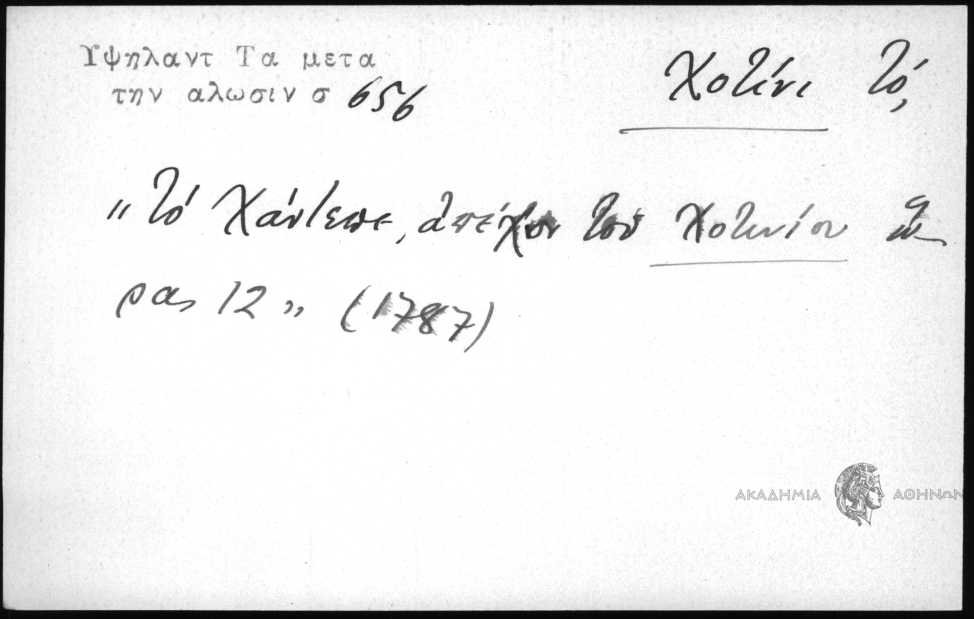 Υψηλαντ Τα μετα
την αλωσιν σ 656
Χοτίνι τό,
"τό Χάντεπε, ἀπέχον τοῦ Χοτινίου ὥ-
ρας 12" (1787)
ΑΚΑΔΗΜΙΑ ΑΘΗΝΩΝ